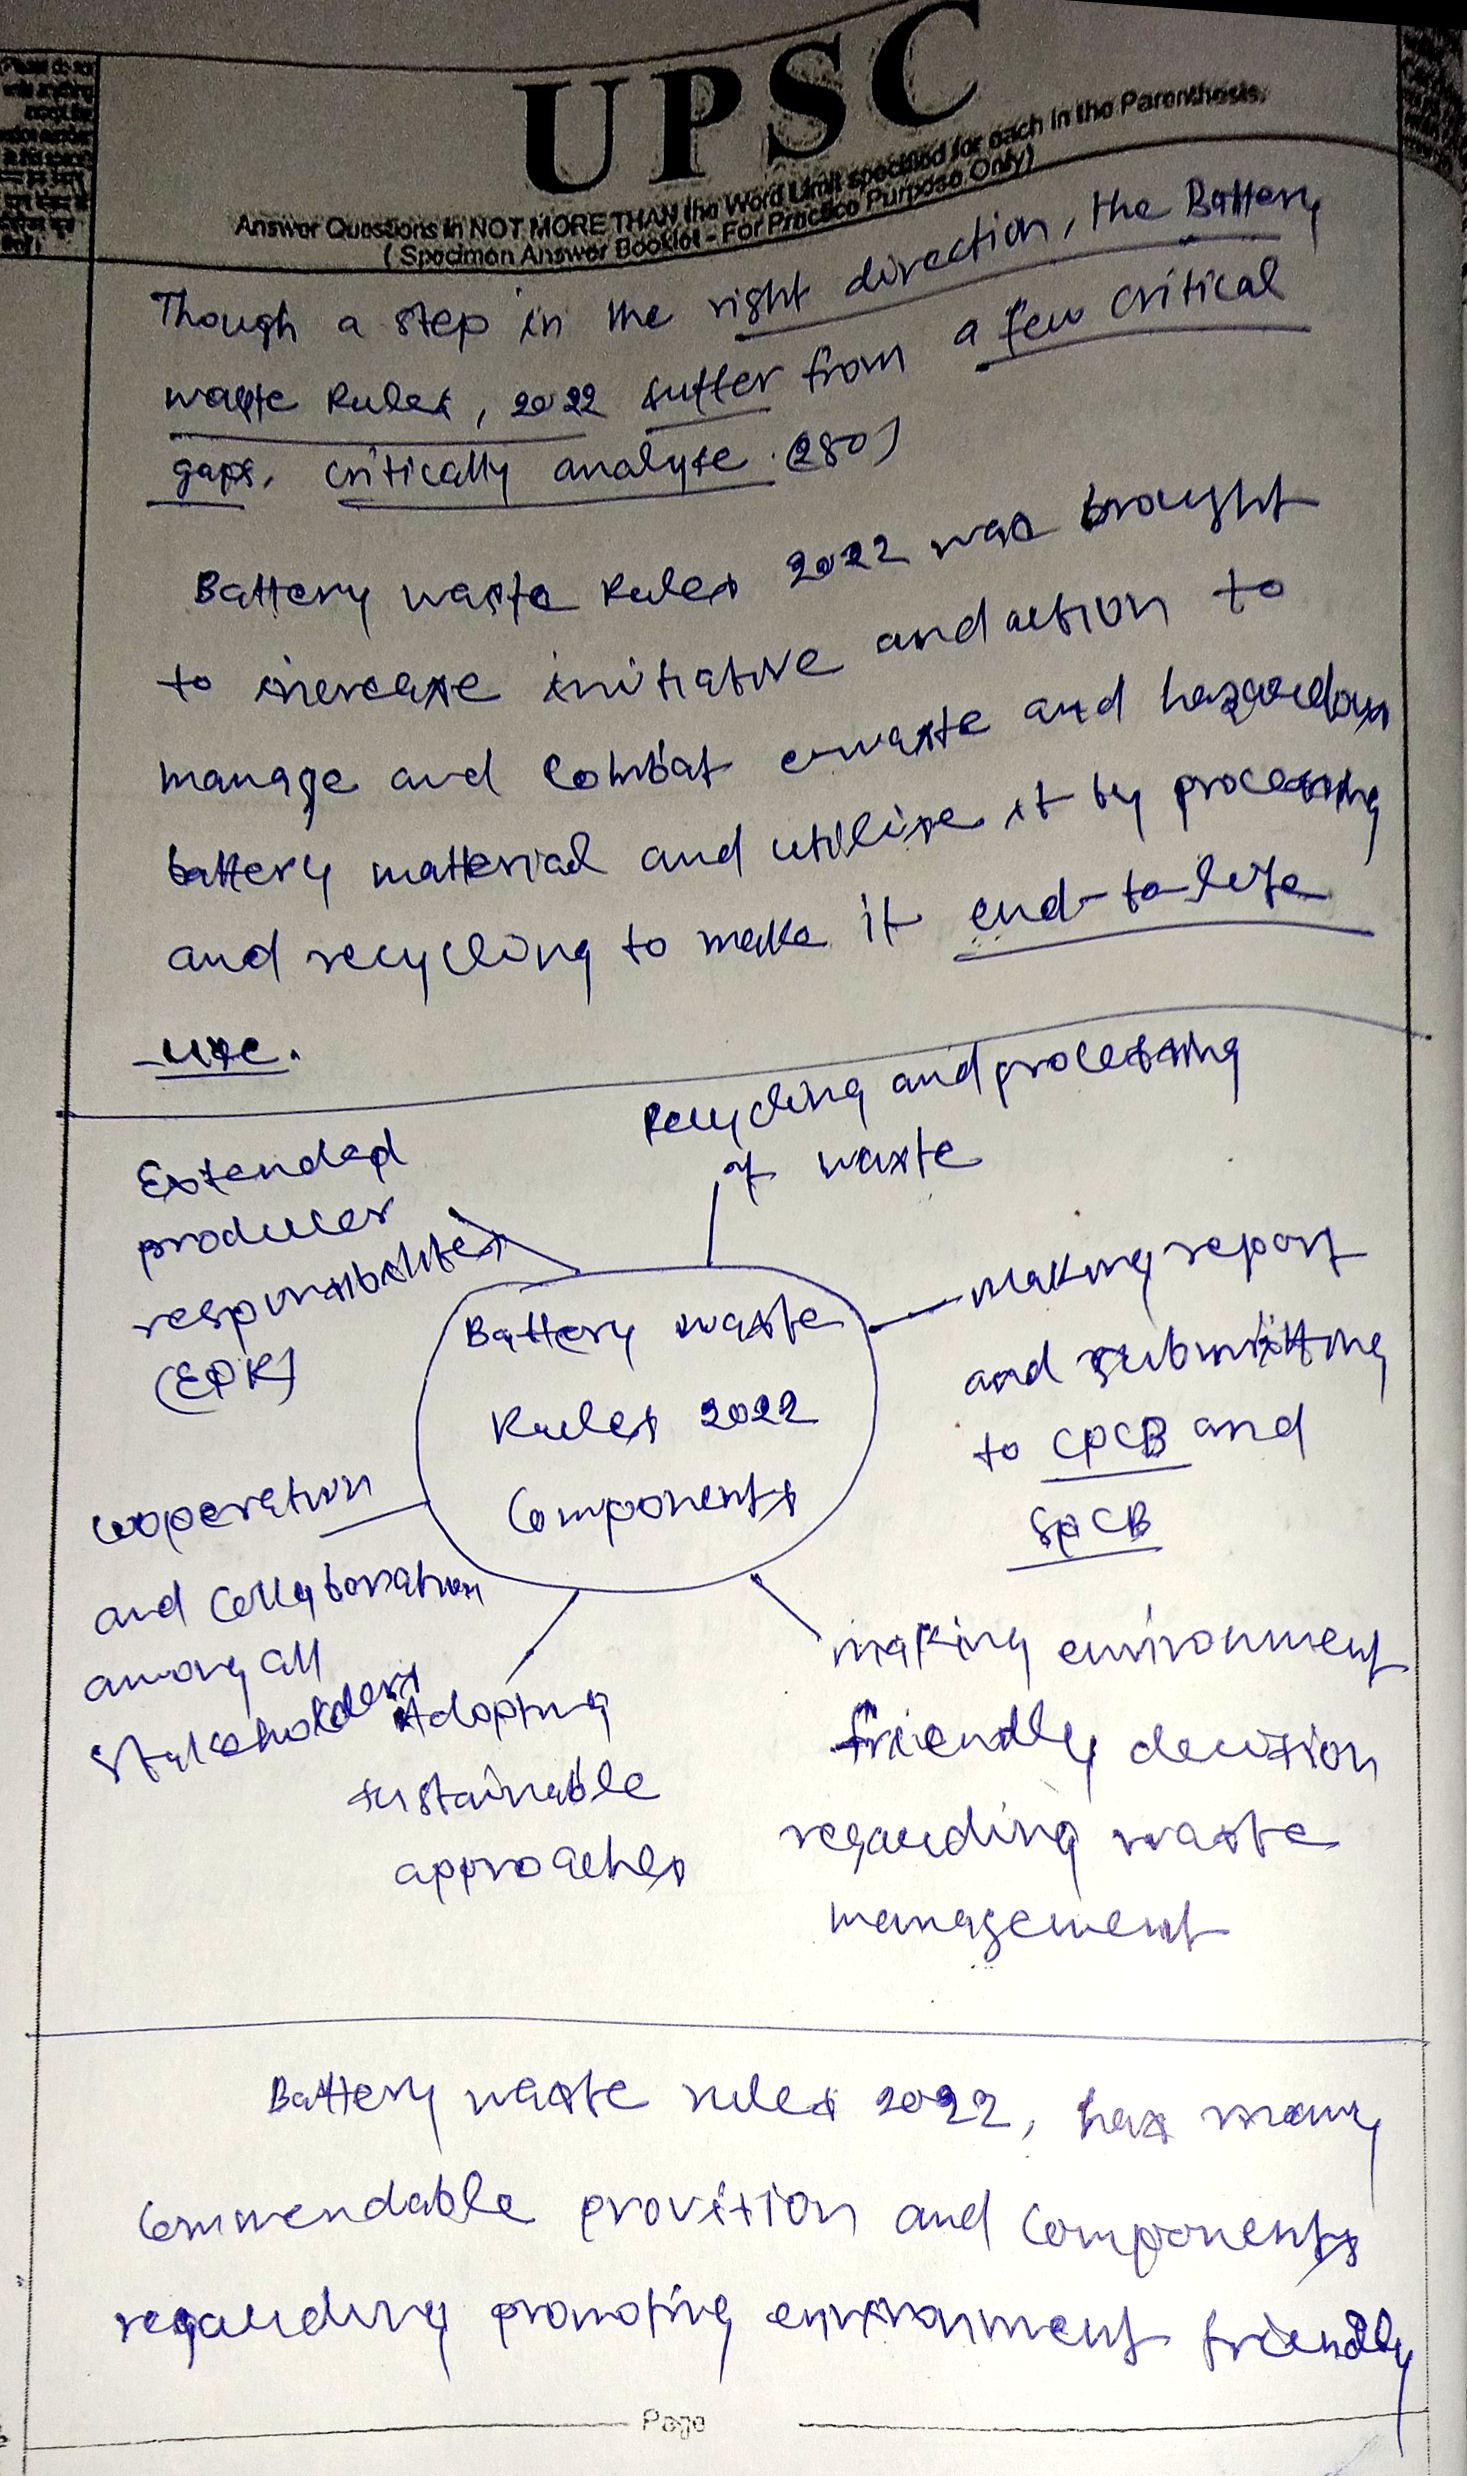 UPSC
Answer Questions in NOT MORE THAN the Word Limit specified for each in the Parenthesis.
( Specimen Answer Booklet - For Practice Purpose Only)
Though a step in the right direction, the Battery
waste Rules, 2022 suffer from a few critical
gaps. critically analyse. (250)
Battery waste Rules 2022 was brought
to increase initiative and action to
manage and combat e-waste and hazardous
battery matterial and utilise it by processing
and recycling to make it end-to-life
-use.
Recycling and processing
of waste
Extended
producer
responsibilities
(EPR)
Making report
and submitting
to CPCB and
SPCB
Battery waste
Rules 2022
Components
cooperation
and collaboration
among all
stakeholders
Adopting
sustainable
approaches
making environment
friendly decision
regarding waste
management
Battery waste rules 2022, has many
commendable provision and components
regarding promoting environment friendly
Page